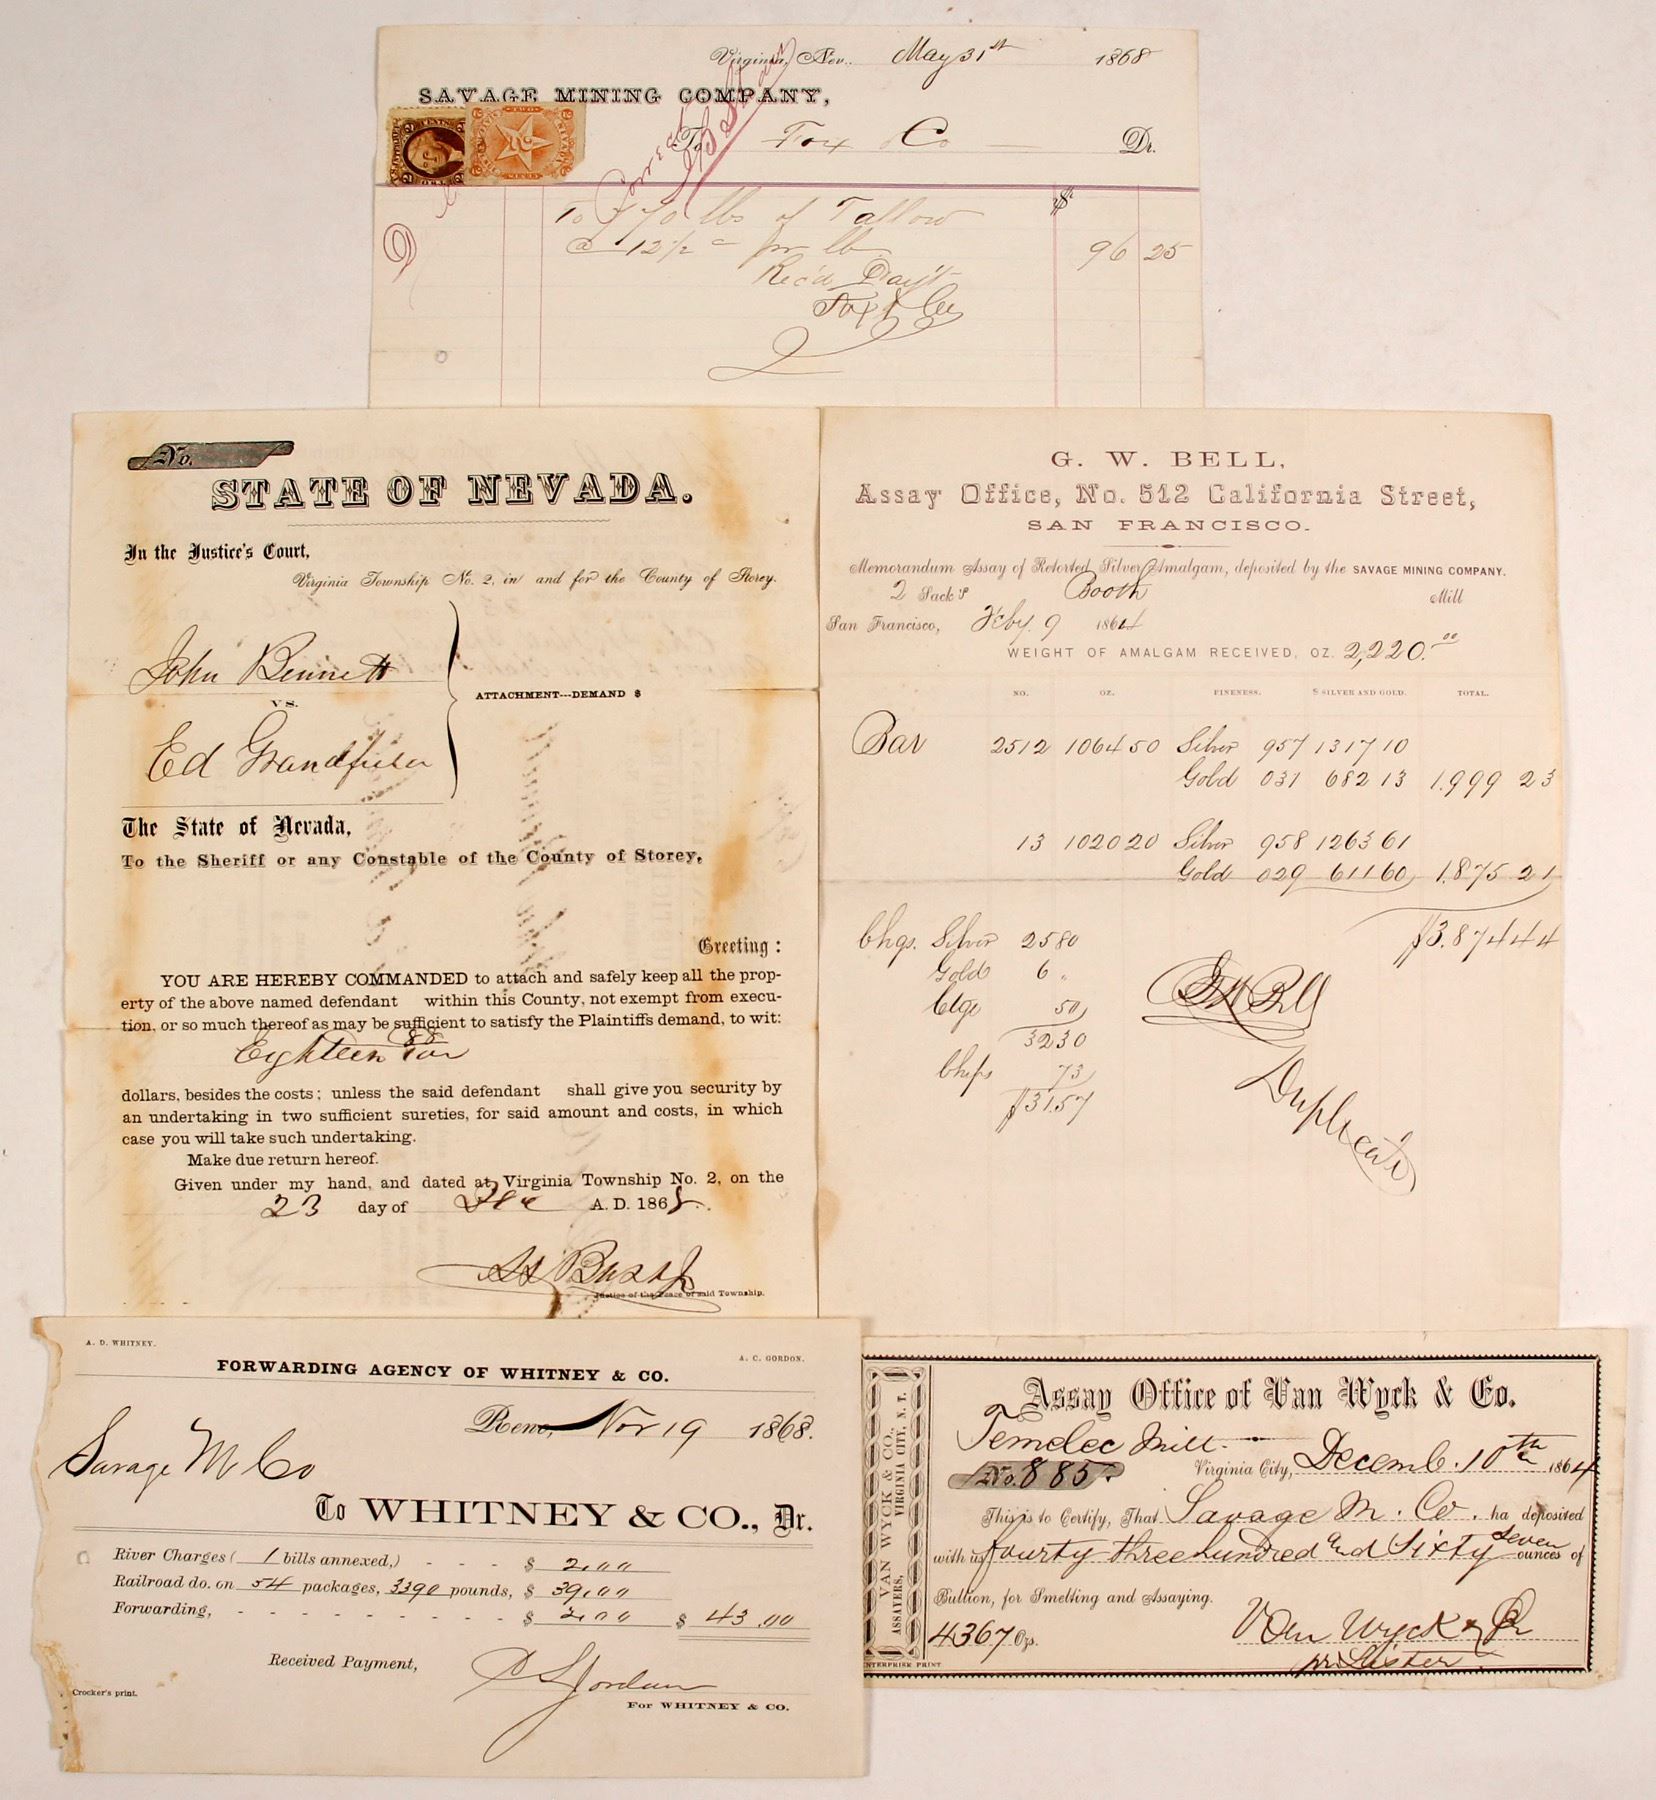 Virginia, Nev., May 31st 1868
SAVAGE MINING COMPANY,
To Fox & Co Dr.
Correct
To 770 lbs of Tallow $
@ 12 1/2 c pr lb 96 25
Rec'd Pay't
Fox & Co
No.
STATE OF NEVADA.
In the Justice's Court,
Virginia Township No. 2, in and for the County of Storey.
John Bennett
VS.
ATTACHMENT---DEMAND $
Ed Grandfield
The State of Nevada,
To the Sheriff or any Constable of the County of Storey,
Greeting:
YOU ARE HEREBY COMMANDED to attach and safely keep all the prop-
erty of the above named defendant within this County, not exempt from execu-
tion, or so much thereof as may be sufficient to satisfy the Plaintiffs demand, to wit:
Eighteen 88/100
dollars, besides the costs; unless the said defendant shall give you security by
an undertaking in two sufficient sureties, for said amount and costs, in which
case you will take such undertaking.
Make due return hereof.
Given under my hand, and dated at Virginia Township No. 2, on the
23 day of Dec A. D. 1868.
Justice of the Peace of said Township.
G. W. BELL,
Assay Office, No. 512 California Street,
SAN FRANCISCO.
Memorandum Assay of Retorted Silver Amalgam, deposited by the SAVAGE MINING COMPANY.
2 Sacks Booth Mill
San Francisco, Feby. 9 1864
WEIGHT OF AMALGAM RECEIVED, OZ. 2,220.00
NO. OZ. FINENESS. $ SILVER AND GOLD. TOTAL.
Bar 2512 1064 50 Silver 957 1317 10
Gold 031 682 13 1,999 23
13 1020 20 Silver 958 1263 61
Gold 029 611 60 1,875 21
$3,874 44
Chgs. Silver 25 80
Gold 6 "
Ctge 50
32 30
Chips 73
$31.57
G W Bell
Duplicate
A. D. WHITNEY.
A. C. GORDON.
FORWARDING AGENCY OF WHITNEY & CO.
Reno, Nov 19 1868.
Savage M Co
To WHITNEY & CO., Dr.
River Charges ( 1 bills annexed,) - - - $ 2.00
Railroad do. on 54 packages, 3390 pounds, $ 39.00
Forwarding, - - - - - - - - - $ 2.00 $ 43.00
Received Payment,
For WHITNEY & CO.
Crocker's print.
VAN WYCK & CO.,
ASSAYERS, VIRGINIA CITY, N. T.
Assay Office of Van Wyck & Co.
Temelec Mill.
No. 885. Virginia City, Decemb. 10th 1864
This is to Certify, That Savage M. Co. ha deposited
with us fourty three hundred and Sixty Seven ounces of
Bullion, for Smelting and Assaying.
4367 Ozs. Van Wyck & Co
pr. Lister
ENTERPRISE PRINT